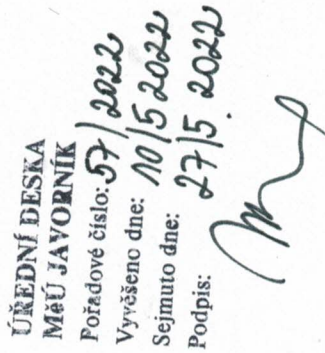 ÚŘEDNÍ DESKA
MěÚ JAVORNÍK
Pořadové číslo: 57/2022
Vyvěšeno dne: 10/5 2022
Sejmuto dne: 27/5. 2022
Podpis: